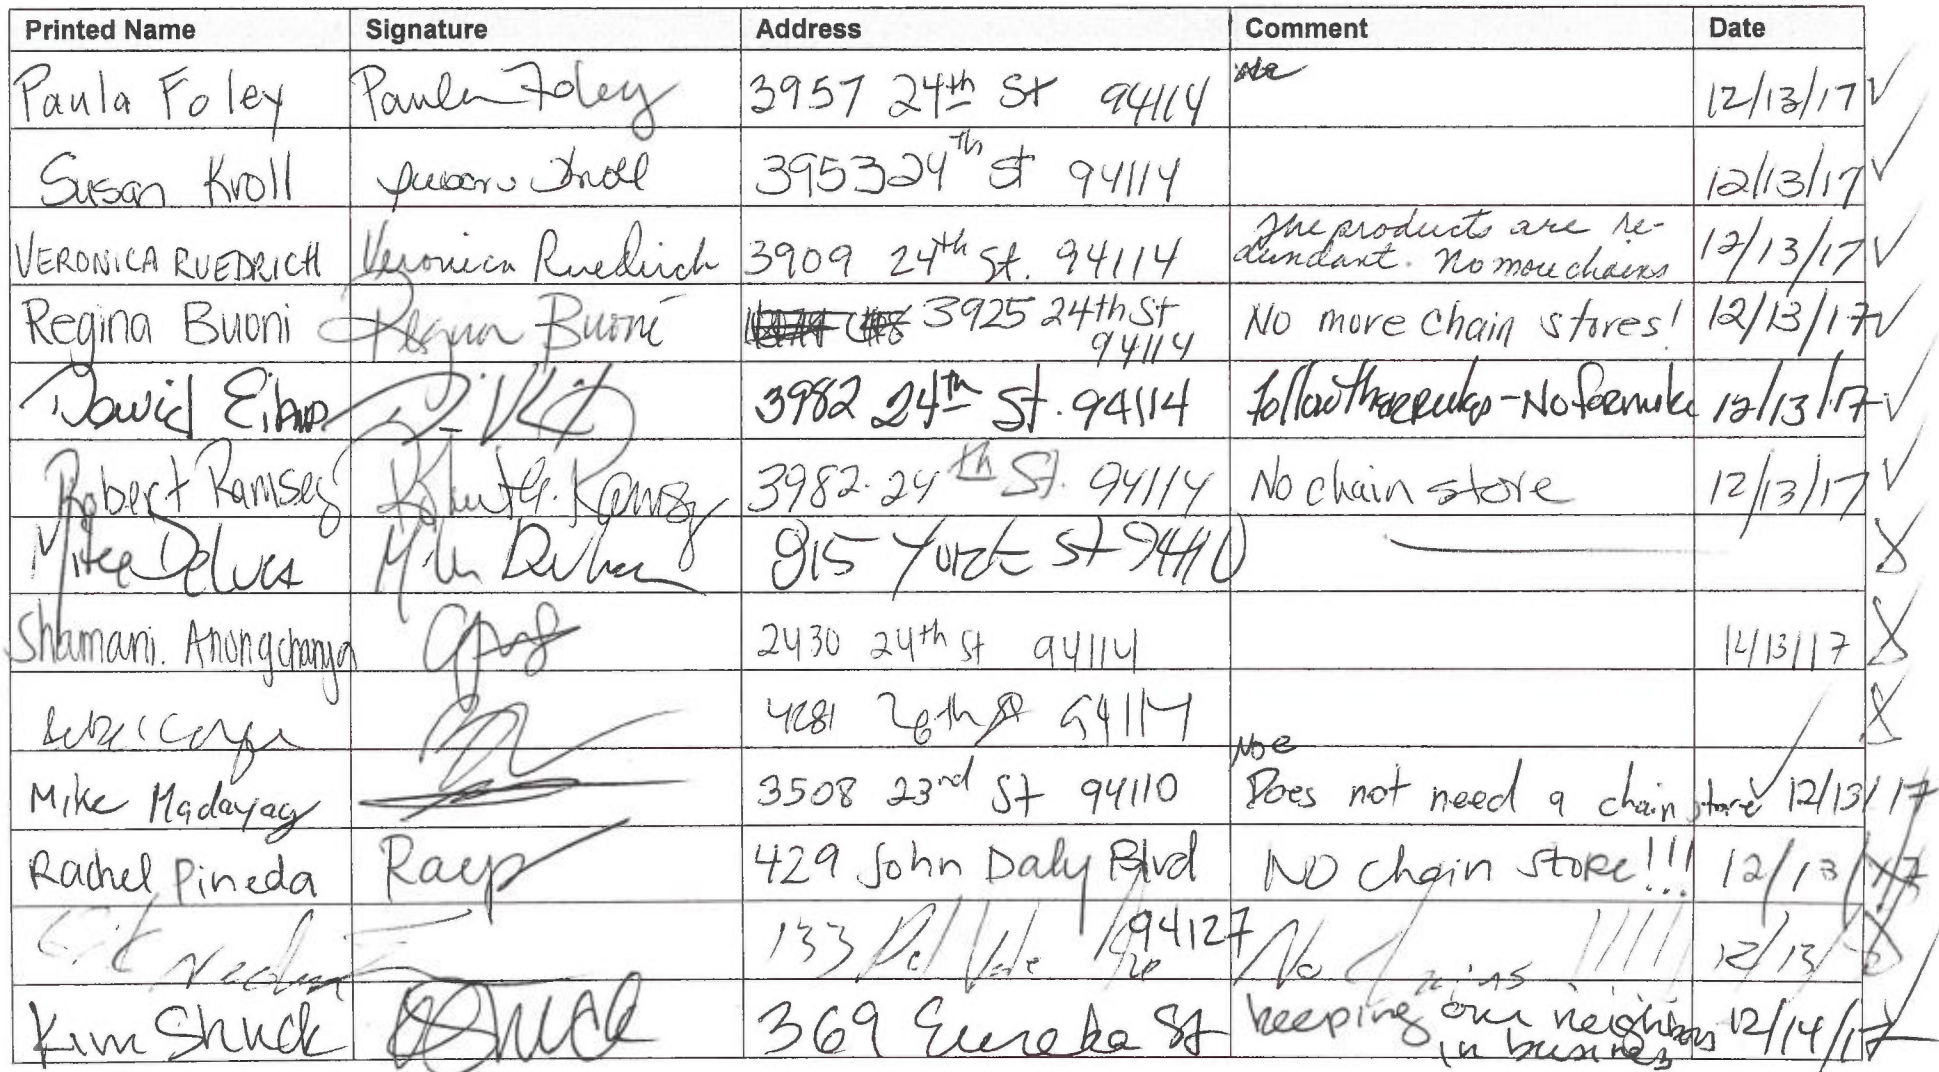 Printed Name Signature Address Comment Date
Paula Foley Paula Foley 3957 24th St 94114 12/13/17 ✓
Susan Kroll Susan Kroll 3953 24th St 94114 12/13/17 ✓
VERONICA RUEDRICH Veronica Ruedrich 3909 24th St. 94114 The products are re-
dundant. No more chains 12/13/17 ✓
Regina Buoni Regina Buoni 3925 24th St
94114 No more chain stores! 12/13/17 ✓
David 3982 24th St. 94114 Follow the rules - No formula 12/13/17 ✓
Robert Ramsey Robert G. Ramsey 3982 24th St. 94114 No chain store 12/13/17 ✓
Mike DeLuca Mike DeLuca 915 York St 94110 X
Shamani. 2430 24th St 94114 12/13/17 X
4281 26th St 94114 X
Noe
Mike Madayag 3508 23rd St 94110 Does not need a chain store ✓ 12/13/17
Rachel Pineda RayP 429 John Daly Blvd NO chain store!!! 12/13/17 X
133 Del Vale 94127 No Chains !!!!! 12/13/ X
Kim Shuck KShuck 369 Eureka St keeping our neighbors
in business 12/14/17 ✓